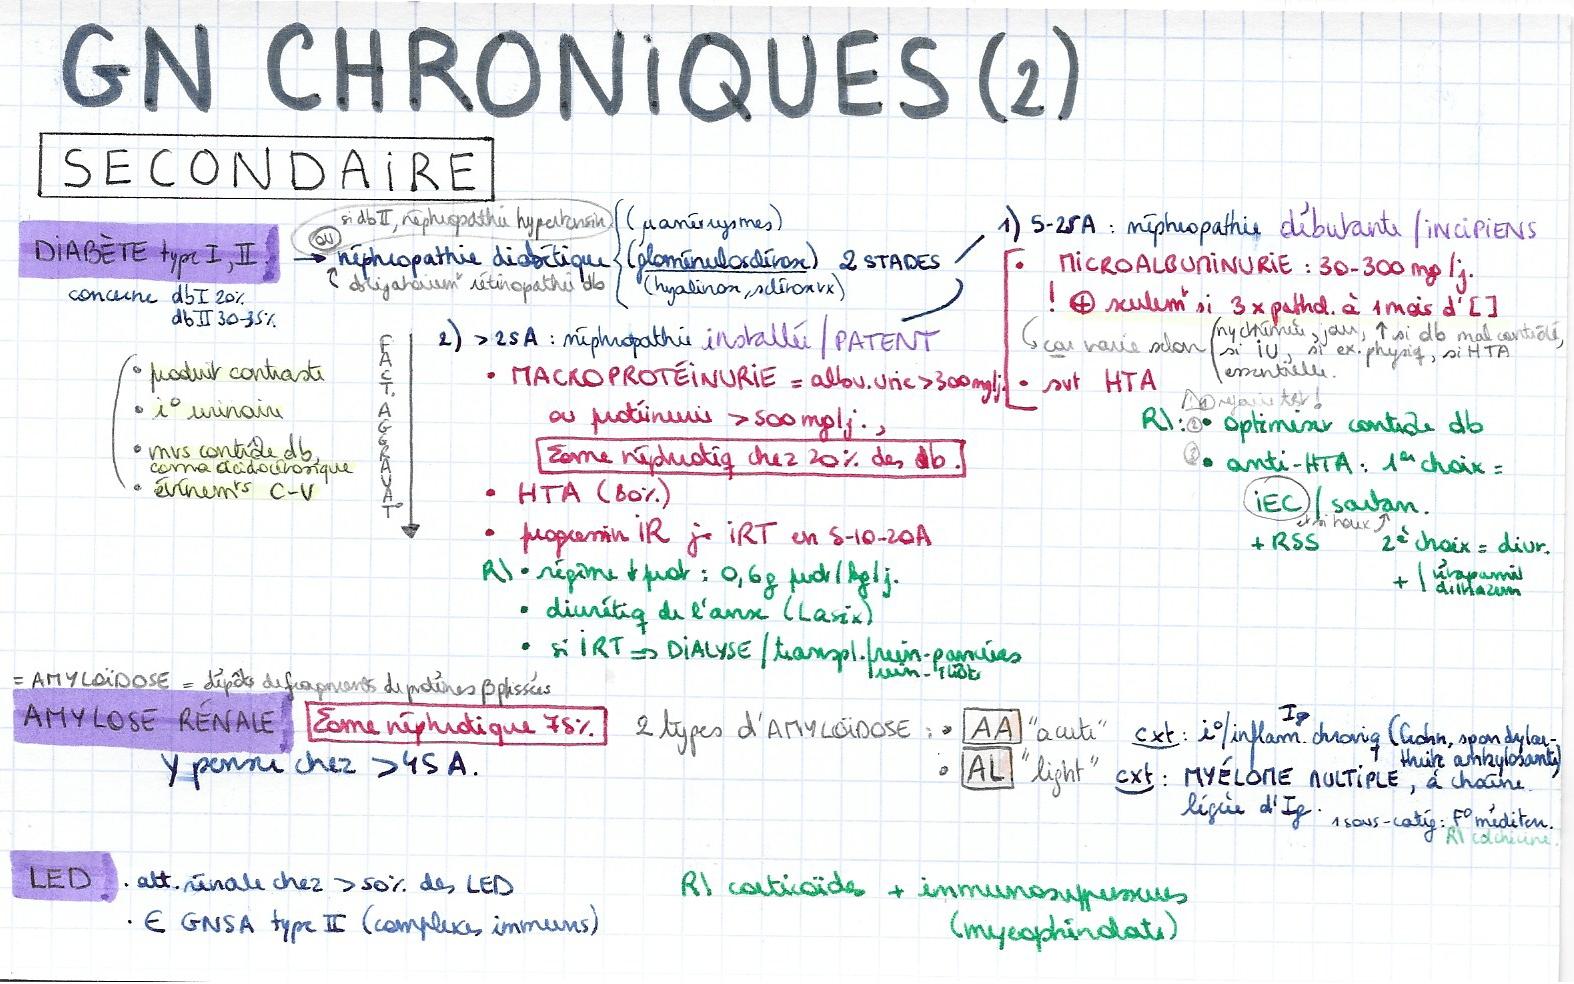 GN CHRONiQUES (2)
SECONDAiRE
DiABÈTE type I, II
concerne db I 20%
db II 30-35%
→ néphropathie diabétique
ou
si db II, néphropathie hypertensiv
obligatoiremt rétinopathie db
(µanévrysmes)
(glomérulosclérose)
(hyalinose, sclérose vx)
2 STADES
1) 5-25A : néphropathie débutante / iNCiPiENS
• MiCROALBUMiNURiE : 30-300 mg/j.
! ⊕ seulemt si 3 x pathol. à 1 mois d'[]
car varie selon
(nycthémère, jour, ↑ si db mal contrôlé,
si iU, si ex. physiq, si HTA
essentielle.
• svt HTA
① refaire test !
R\ : ② • optimiser contrôle db
③ • anti-HTA : 1er choix =
iEC / sartan.
et si toux ↑
+ RSS 2è choix = diur.
+ | vérapamil
diltiazem
2) > 25A : néphropathie installée / PATENT
• MACROPROTÉiNURiE = albu.urie > 300 mg/j.
ou protéinurie > 500 mg/j.,
Σome néphrotiq chez 20% des db.
• HTA (80%)
• progression iR j→ iRT en 5-10-20A
R\ • régime ↓ prot : 0,6g prot/kg/j.
• diurétiq de l'anse (Lasix)
• si iRT ⇒ DiALYSE / transpl. / rein-pancréas
rein-îlôt
FACT. AGGRAVATo
• produit contraste
• i° urinaire
• mvs contrôle db,
coma acidocétosique
• évènemts C-V
= AMYLOÏDOSE = dépôts de fragments de protéines β plissées
AMYLOSE RÉNALE
Σome néphrotique 75%
y penser chez > 45 A.
2 types d'AMYLOÏDOSE :
• AA "acute" cxt : i°/inflam. chroniq (Crohn, spondylar-
thrite ankylosante)
• AL "light" Ig cxt : MYÉLOME MULTiPLE, à chaîne
légère d'Ig.
1 sous-catég : F° méditer.
R\ colchicine.
LED
• att. rénale chez > 50% des LED
• ∈ GNSA type II (complexes immuns)
R\ corticoïdes + immunosuppresseurs
(mycophénolate)